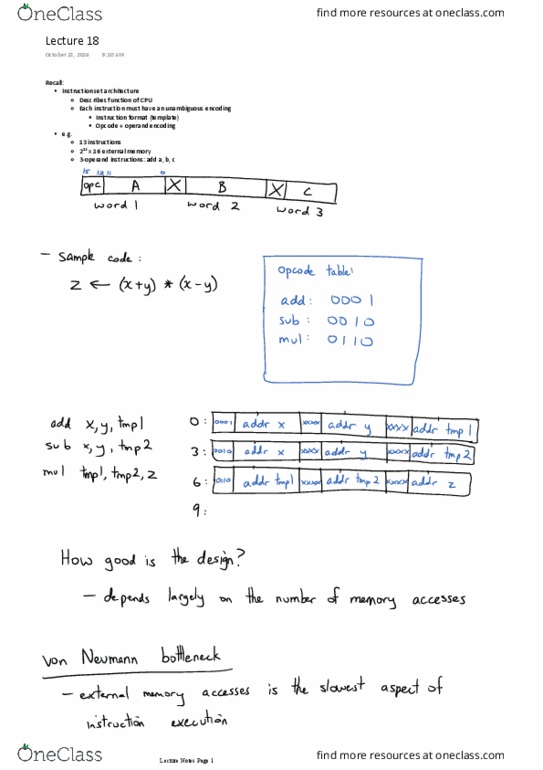 OneClass
find more resources at oneclass.com
Lecture 18
October 21, 2016
Recall:
• Instruction set architecture
○ Describes function of CPU
○ Each instruction must have an unambiguous encoding
▪ Instruction format (template)
▪ Opcode + operand encoding
• e.g.
○ 13 instructions
○ x 16 external memory
○ 3-operand instructions: add a, b, c
15 12 11 0
opc A X B X C
word 1 word 2 word 3
- sample code:
z ← (x+y) * (x-y)
opcode table:
add: 0001
sub: 0010
mul: 0110
add x, y, tmp1
sub x, y, tmp2
mul tmp1, tmp2, z
0: 0001 addr x xxxx addr y xxxx addr tmp1
3: 0010 addr x xxxx addr y xxxx addr tmp2
6: 0110 addr tmp1 xxxx addr tmp2 xxxx addr z
9:
How good is the design?
- depends largely on the number of memory accesses
von Neumann bottleneck
- external memory accesses is the slowest aspect of
instruction execution
Lecture Notes Page 1
OneClass
find more resources at oneclass.com